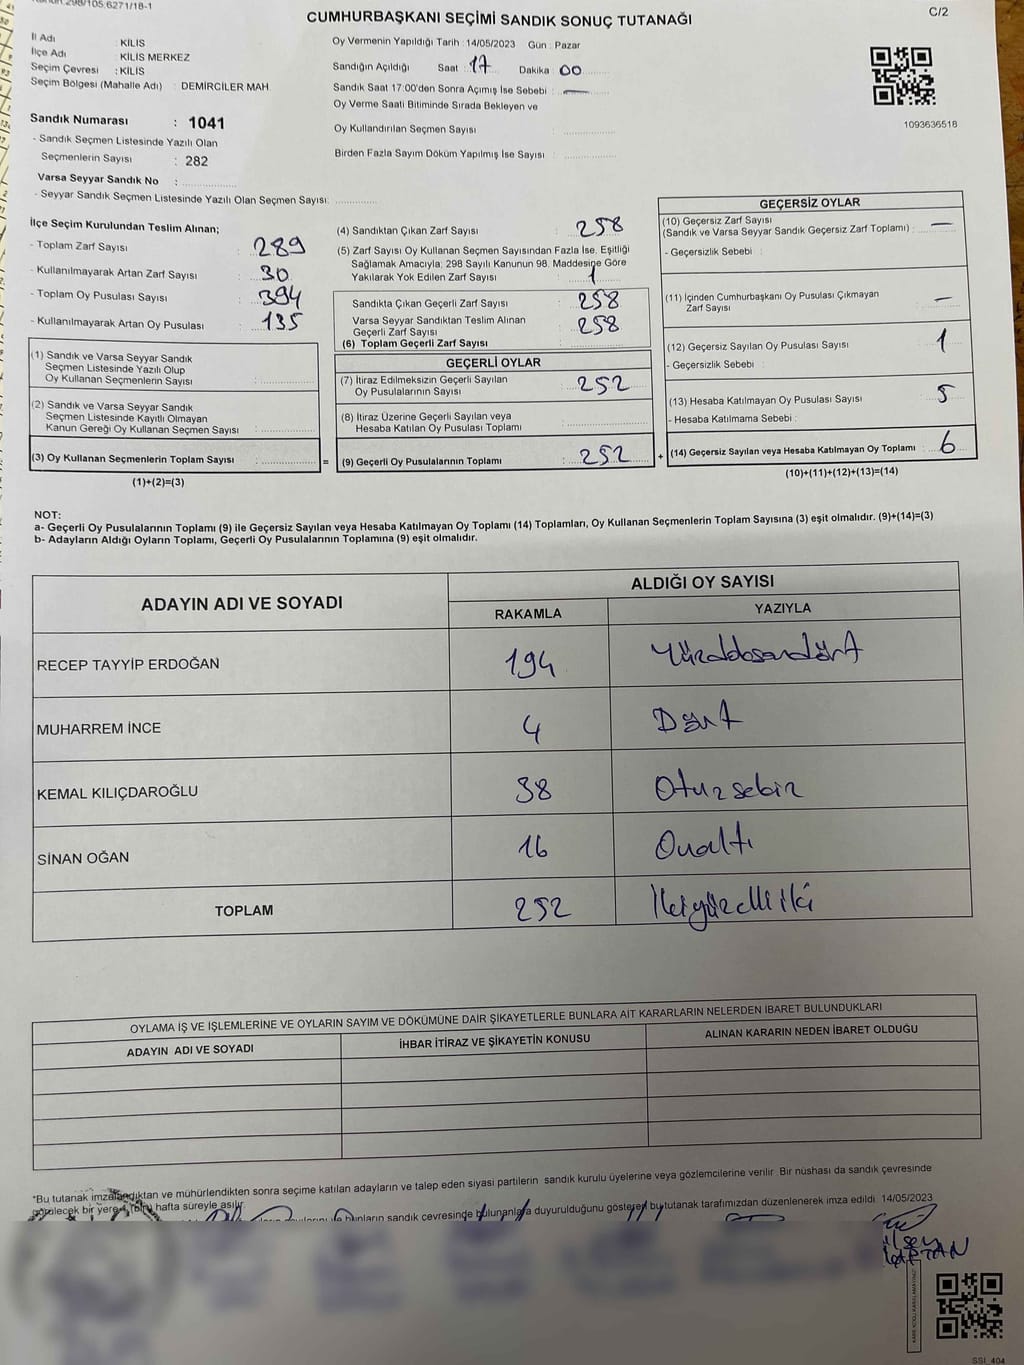 Kanun:298/105.6271/18-1
CUMHURBAŞKANI SEÇİMİ SANDIK SONUÇ TUTANAĞI
C/2
İl Adı : KİLİS
İlçe Adı : KİLİS MERKEZ
Seçim Çevresi : KİLİS
Seçim Bölgesi (Mahalle Adı) : DEMİRCİLER MAH
Sandık Numarası : 1041
- Sandık Seçmen Listesinde Yazılı Olan
Seçmenlerin Sayısı : 282
Varsa Seyyar Sandık No :
- Seyyar Sandık Seçmen Listesinde Yazılı Olan Seçmen Sayısı:
Oy Vermenin Yapıldığı Tarih : 14/05/2023 Gün : Pazar
Sandığın Açıldığı Saat : 17 Dakika : 00
Sandık Saat 17:00'den Sonra Açımış İse Sebebi : —
Oy Verme Saati Bitiminde Sırada Bekleyen ve
Oy Kullandırılan Seçmen Sayısı :
Birden Fazla Sayım Döküm Yapılmış İse Sayısı :
1093636518
İlçe Seçim Kurulundan Teslim Alınan;
- Toplam Zarf Sayısı : 289
- Kullanılmayarak Artan Zarf Sayısı : 30
- Toplam Oy Pusulası Sayısı : 394
- Kullanılmayarak Artan Oy Pusulası : 135
(1) Sandık ve Varsa Seyyar Sandık
Seçmen Listesinde Yazılı Olup
Oy Kullanan Seçmenlerin Sayısı :
(2) Sandık ve Varsa Seyyar Sandık
Seçmen Listesinde Kayıtlı Olmayan
Kanun Gereği Oy Kullanan Seçmen Sayısı :
(3) Oy Kullanan Seçmenlerin Toplam Sayısı : =
(1)+(2)=(3)
(4) Sandıktan Çıkan Zarf Sayısı : 258
(5) Zarf Sayısı Oy Kullanan Seçmen Sayısından Fazla İse, Eşitliği
Sağlamak Amacıyla; 298 Sayılı Kanunun 98. Maddesine Göre
Yakılarak Yok Edilen Zarf Sayısı : 1
Sandıkta Çıkan Geçerli Zarf Sayısı : 258
Varsa Seyyar Sandıktan Teslim Alınan
Geçerli Zarf Sayısı : 258
(6) Toplam Geçerli Zarf Sayısı :
GEÇERLİ OYLAR
(7) İtiraz Edilmeksizin Geçerli Sayılan
Oy Pusulalarının Sayısı : 252
(8) İtiraz Üzerine Geçerli Sayılan veya
Hesaba Katılan Oy Pusulası Toplamı :
(9) Geçerli Oy Pusulalarının Toplamı : 252 +
GEÇERSİZ OYLAR
(10) Geçersiz Zarf Sayısı
(Sandık ve Varsa Seyyar Sandık Geçersiz Zarf Toplamı) : —
- Geçersizlik Sebebi :
(11) İçinden Cumhurbaşkanı Oy Pusulası Çıkmayan
Zarf Sayısı : —
(12) Geçersiz Sayılan Oy Pusulası Sayısı : 1
- Geçersizlik Sebebi :
(13) Hesaba Katılmayan Oy Pusulası Sayısı : 5
- Hesaba Katılmama Sebebi :
(14) Geçersiz Sayılan veya Hesaba Katılmayan Oy Toplamı : 6
(10)+(11)+(12)+(13)=(14)
NOT:
a- Geçerli Oy Pusulalarının Toplamı (9) ile Geçersiz Sayılan veya Hesaba Katılmayan Oy Toplamı (14) Toplamları, Oy Kullanan Seçmenlerin Toplam Sayısına (3) eşit olmalıdır. (9)+(14)=(3)
b- Adayların Aldığı Oyların Toplamı, Geçerli Oy Pusulalarının Toplamına (9) eşit olmalıdır.
ADAYIN ADI VE SOYADI
ALDIĞI OY SAYISI
RAKAMLA YAZIYLA
RECEP TAYYİP ERDOĞAN 194 Yüzdoksandört
MUHARREM İNCE 4 Dört
KEMAL KILIÇDAROĞLU 38 Otuzsekiz
SİNAN OĞAN 16 Onaltı
TOPLAM 252 İkiyüzelliiki
OYLAMA İŞ VE İŞLEMLERİNE VE OYLARIN SAYIM VE DÖKÜMÜNE DAİR ŞİKAYETLERLE BUNLARA AİT KARARLARIN NELERDEN İBARET BULUNDUKLARI
ADAYIN ADI VE SOYADI İHBAR İTİRAZ VE ŞİKAYETİN KONUSU ALINAN KARARIN NEDEN İBARET OLDUĞU
*Bu tutanak imzalandıktan ve mühürlendikten sonra seçime katılan adayların ve talep eden siyasi partilerin sandık kurulu üyelerine veya gözlemcilerine verilir. Bir nüshası da sandık çevresinde
görülecek bir yere 1 (bir) hafta süreyle asılır.
bunların sandık çevresinde bulunanlara duyurulduğunu gösteren bu tutanak tarafımızdan düzenlenerek imza edildi. 14/05/2023
SSI 404